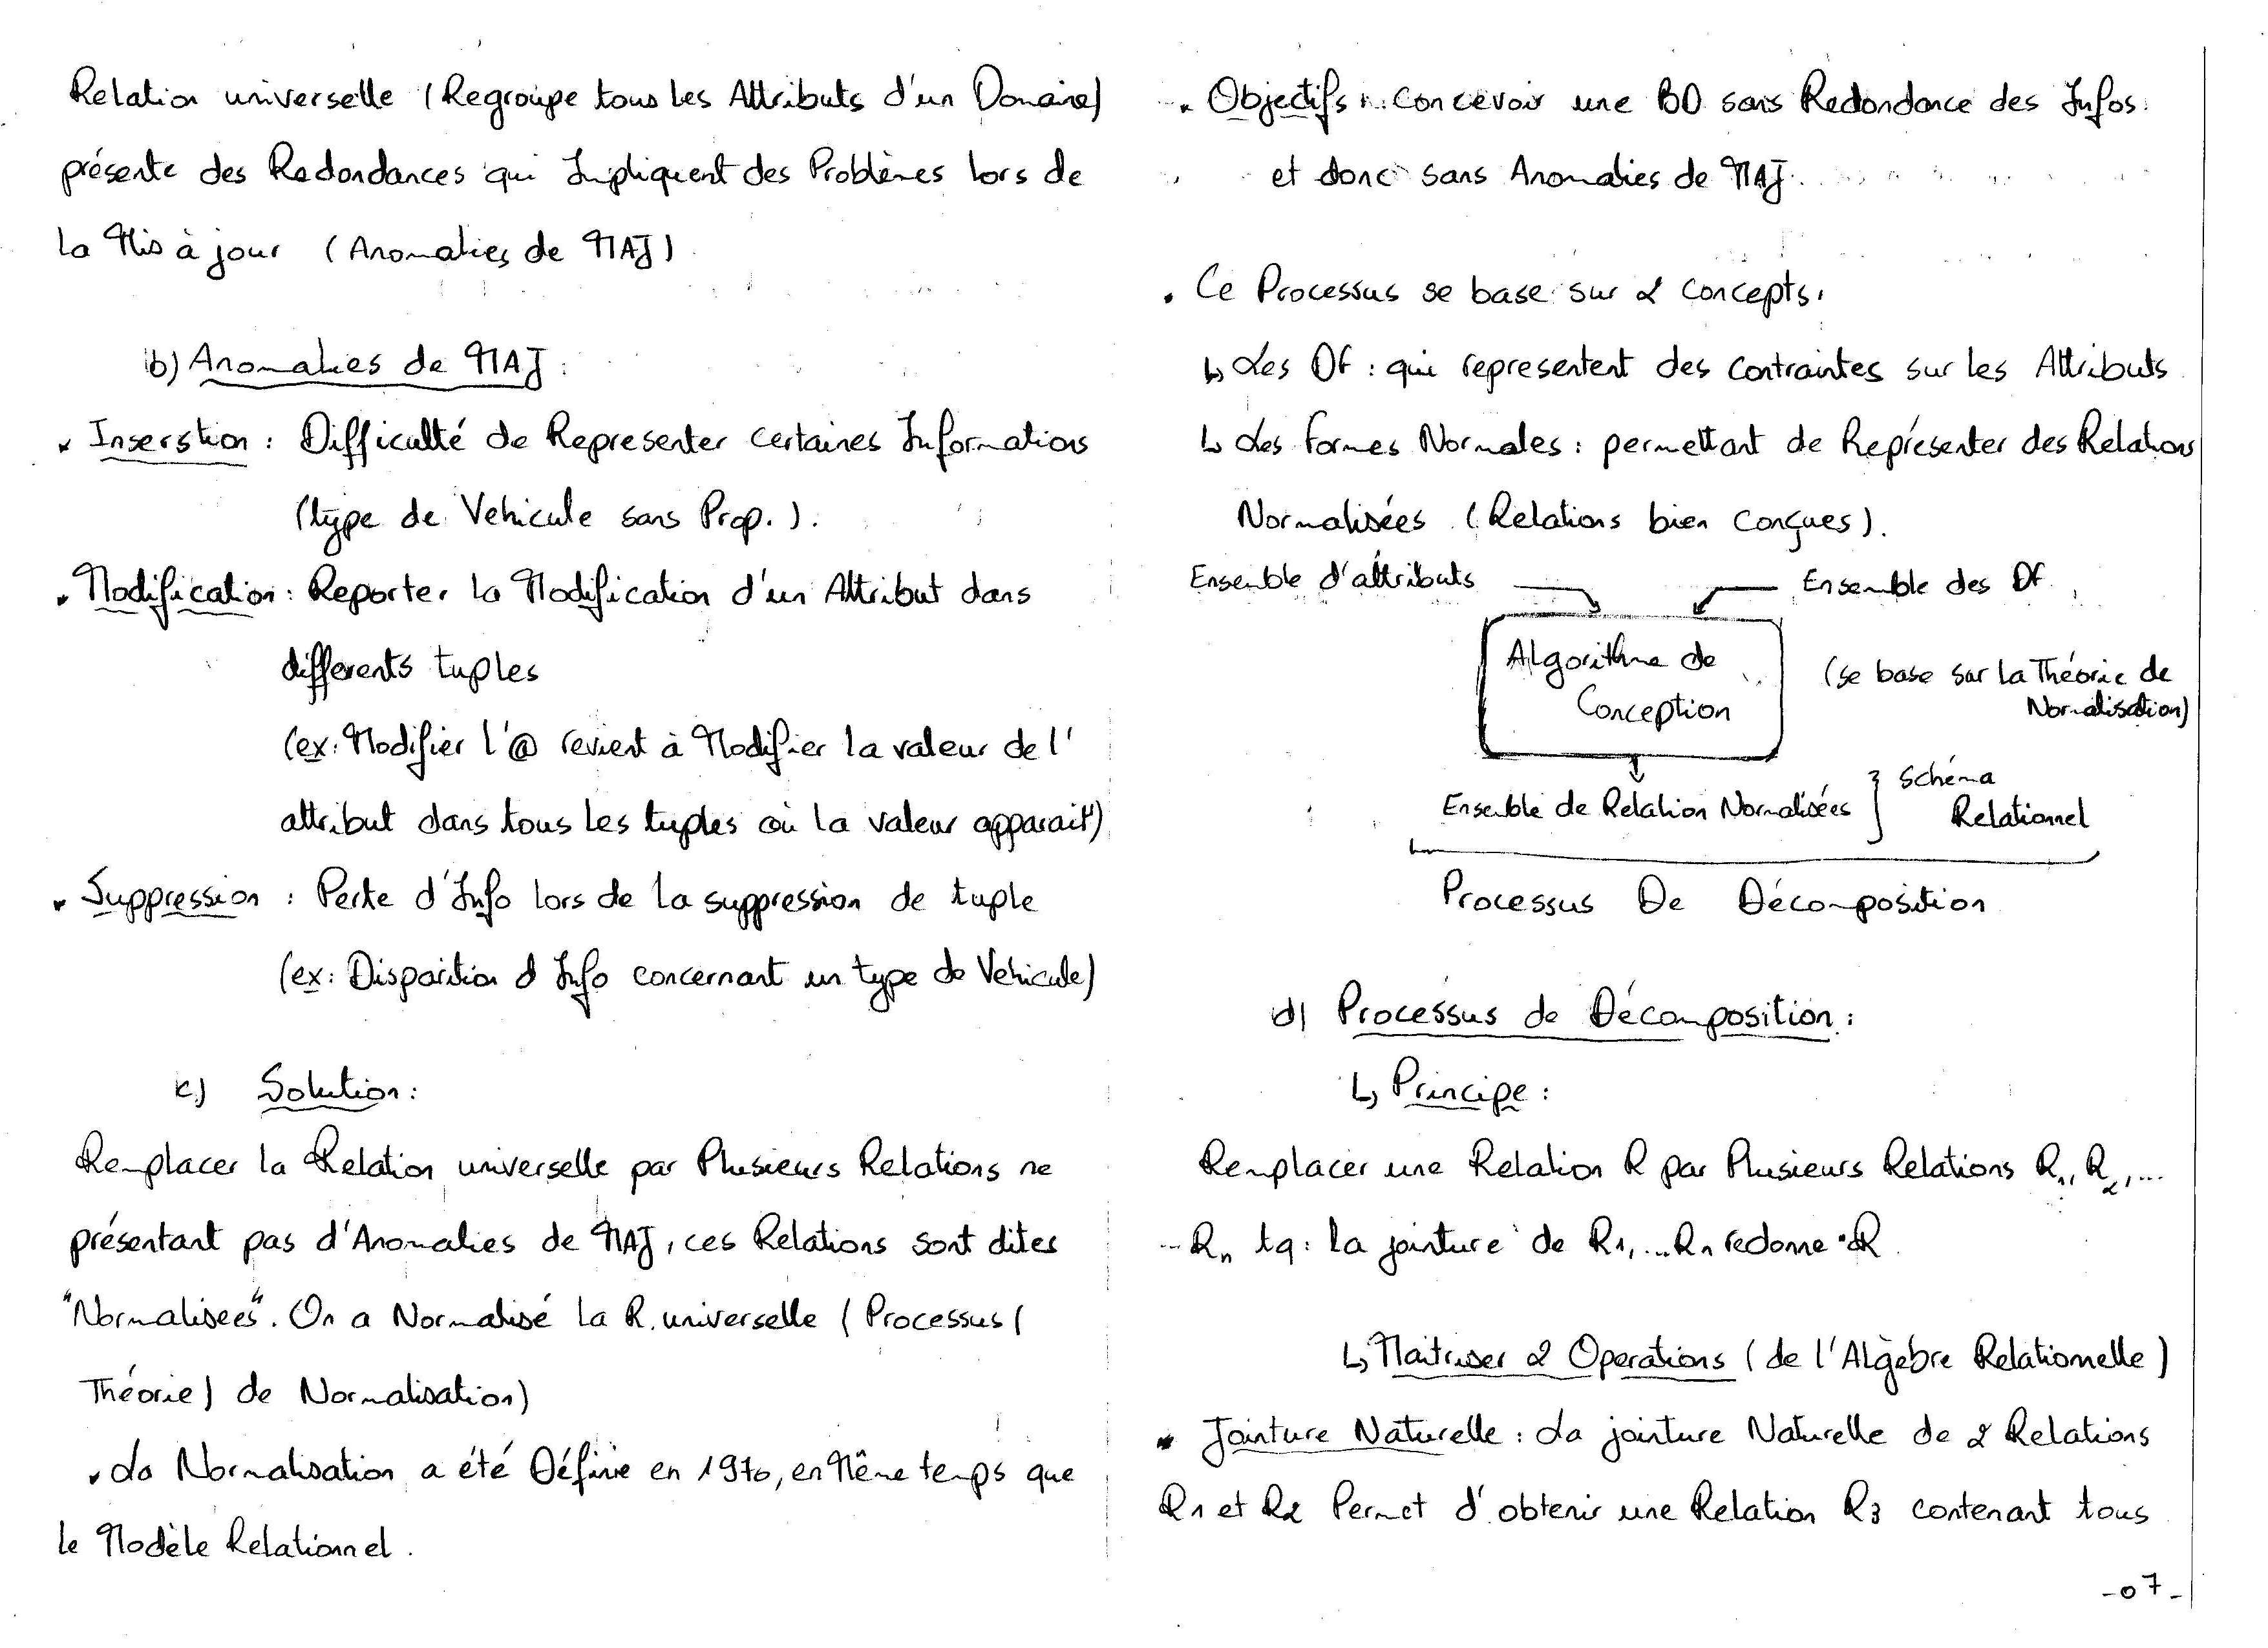 Relation universelle (Regroupe tous les Attributs d'un Domaine)
présente des Redondances qui Impliquent des Problèmes lors de
la Mis à jour (Anomalies de MAJ)
b) Anomalies de MAJ :
Inserstion : Difficulté de Representer certaines Informations
(type de Vehicule sans Prop.).
Modification : Reporter la Modification d'un Attribut dans
differents tuples
(ex: Modifier l'@ revient à Modifier la valeur de l'
attribut dans tous les tuples où la valeur apparait)
Suppression : Perte d'Info lors de la suppression de tuple
(ex: Disparition d Info concernant un type de Vehicule)
c) Solution :
Remplacer la Relation universelle par Plusieurs Relations ne
présentant pas d'Anomalies de MAJ, ces Relations sont dites
"Normalisees". On a Normalisé la R. universelle (Processus (
Théorie) de Normalisation)
. La Normalisation a été Définie en 1970, en Même temps que
le Modèle Relationnel.
. Objectifs : Concevoir une BD sans Redondance des Infos
et donc sans Anomalies de MAJ.
. Ce Processus se base sur 2 concepts :
↳ Les DF : qui representent des contraintes sur les Attributs
↳ Les formes Normales : permettant de Représenter des Relations
Normalisées (Relations bien conçues).
Ensemble d'attributs Ensemble des DF
Algorithme de
Conception
(se base sur la Théorie de
Normalisation)
Ensemble de Relation Normalisées } Schéma
Relationnel
Processus De Décomposition
d) Processus de Décomposition :
↳ Principe :
Remplacer une Relation R par Plusieurs Relations R1, R2, ...
... Rn tq : la jointure de R1, ... Rn redonne R
↳ Maitriser 2 Operations (de l'Algèbre Relationnelle)
Jointure Naturelle : La jointure Naturelle de 2 Relations
R1 et R2 Permet d'obtenir une Relation R3 contenant tous
- 07 -